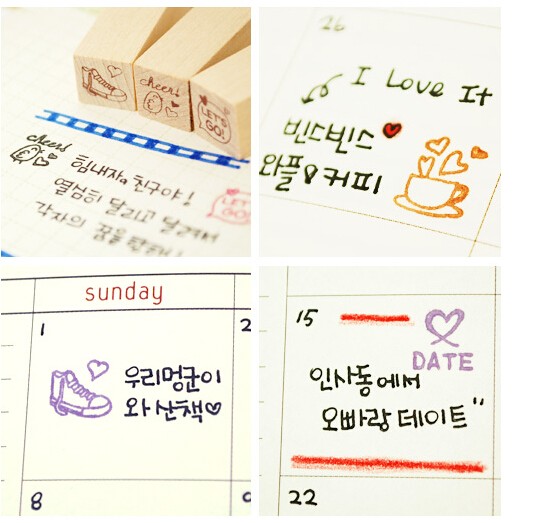 cheer!
LET'S GO!
cheer!
힘내자 친구야!
열심히 달리고 달려서
각자의 꿈을
LET'S GO!
26
I Love It
빈스빈스
와플&커피
sunday
1
2
우리멍군이
와 산책♡
8
15
DATE
인사동에서
오빠랑 데이트"
22